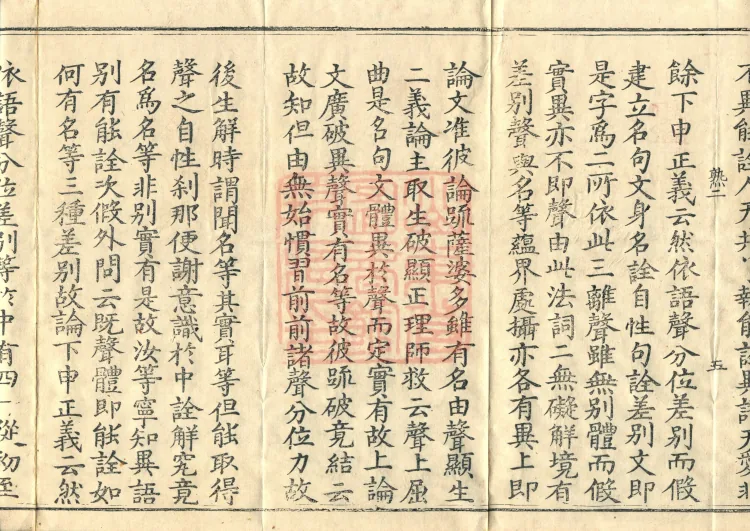 不異能詮
熟二
五
餘下申正義云然依語聲分位差別而假
建立名句文身名詮自性句詮差別文即
是字爲二所依此三離聲雖無別體而假
實異亦不即聲由此法詞二無礙解境有
差別聲與名等藴界處攝亦各有異上即
論文准彼論䟽薩婆多雖有名由聲顯生
二義論主取生破顯正理師救云聲上屈
曲是名句文體異於聲而定實有故上論
文廣破異聲實有名等故彼䟽破竟結云
故知但由無始慣習前前諸聲分位力故
後生解時謂聞名等其實耳等但能取得
聲之自性刹那便謝意識於中詮解究竟
名爲名等非別實有是故汝等寧知異語
別有能詮次假外問云既聲體即能詮如
何有名等三種差別故論下申正義云然
依語聲分位差別等於中有四一從初至